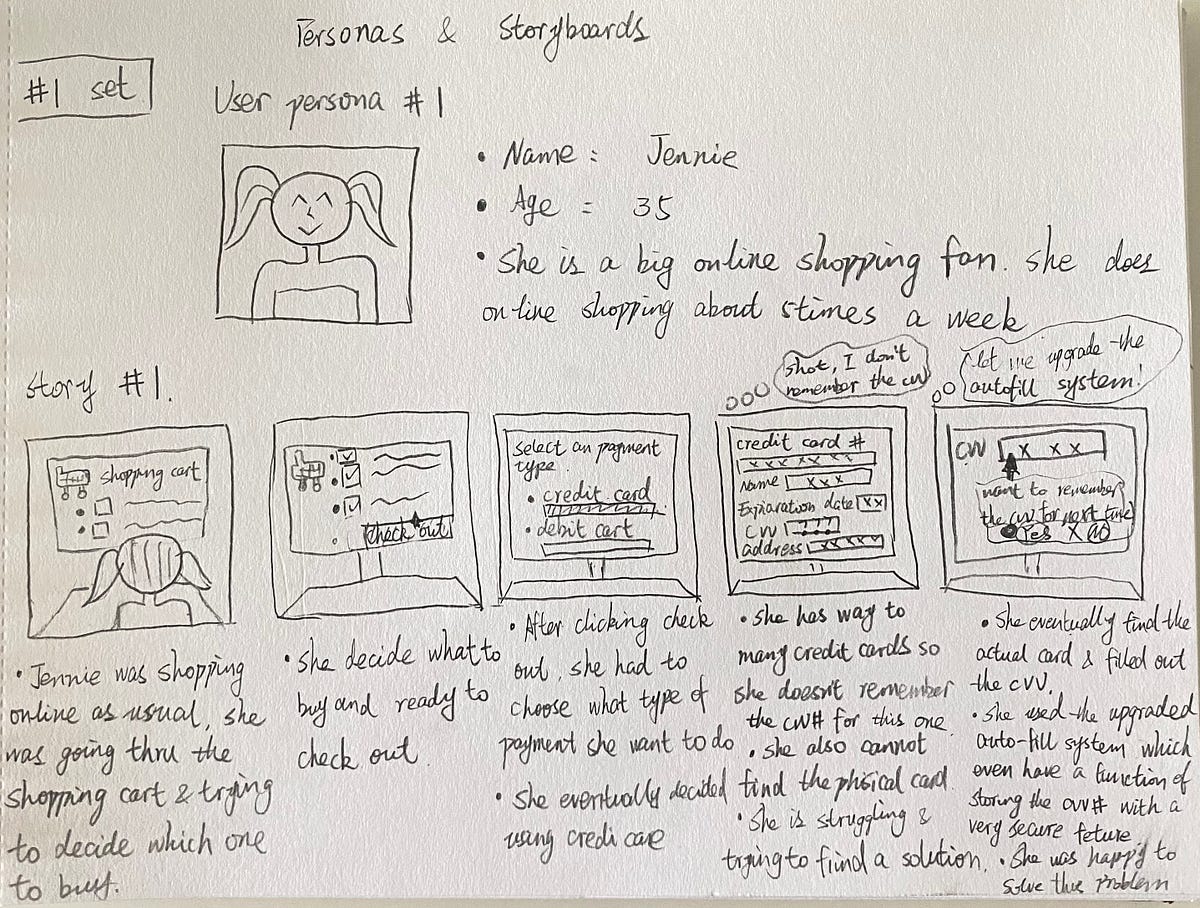 Personas & Storyboards
#1 set
User persona #1
• Name : Jennie
• Age : 35
• She is a big online shopping fan. she does
online shopping about 5times a week
Story #1.
shopping cart
check out
select an payment
type.
• credit card
• debit cart
shot, I don't
remember the cvv
credit card #
xxxxxxx
Name xxx
Expiaration date xx
CVV ???
address xxxxxx
let me upgrade the
autofill system!
CVV x x x
want to remember
the cvv for next time
Yes X NO
• Jennie was shopping
online as usual, she
was going thru the
shopping cart & trying
to decide which one
to buy.
• she decide what to
buy and ready to
check out.
• After clicking check
out, she had to
choose what type of
payment she want to do
• She eventually decided
using credi care
• she has way to
many credit cards so
she doesn't remember
the cvv# for this one
• she also cannot
find the phisical card.
• She is struggling &
trying to fiind a solution.
• She eventually find the
actual card & filled out
the cvv.
• She used the upgraded
auto-fill system which
even have a function of
storing the cvv# with a
very secure feture.
• She was happy to
solve this problem